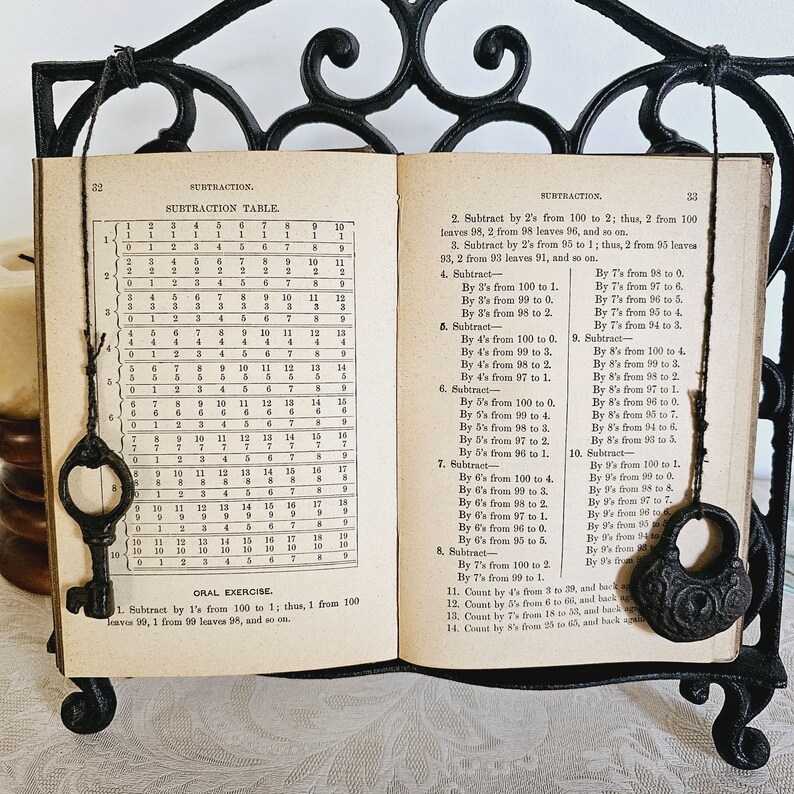 32 SUBTRACTION.
SUBTRACTION TABLE.
1 2 3 4 5 6 7 8 9 10
1 1 1 1 1 1 1 1 1 1 1
0 1 2 3 4 5 6 7 8 9
2 3 4 5 6 7 8 9 10 11
2 2 2 2 2 2 2 2 2 2 2
0 1 2 3 4 5 6 7 8 9
3 4 5 6 7 8 9 10 11 12
3 3 3 3 3 3 3 3 3 3 3
0 1 2 3 4 5 6 7 8 9
4 5 6 7 8 9 10 11 12 13
4 4 4 4 4 4 4 4 4 4 4
0 1 2 3 4 5 6 7 8 9
5 6 7 8 9 10 11 12 13 14
5 5 5 5 5 5 5 5 5 5
0 1 2 3 4 5 6 7 8 9
6 7 8 9 10 11 12 13 14 15
6 6 6 6 6 6 6 6 6 6 6
0 1 2 3 4 5 6 7 8 9
7 8 9 10 11 12 13 14 15 16
7 7 7 7 7 7 7 7 7 7
0 1 2 3 4 5 6 7 8 9
8 9 10 11 12 13 14 15 16 17
8 8 8 8 8 8 8 8 8 8 8
0 1 2 3 4 5 6 7 8 9
9 10 11 12 13 14 15 16 17 18
9 9 9 9 9 9 9 9 9 9
0 1 2 3 4 5 6 7 8 9
10 11 12 13 14 15 16 17 18 19
10 10 10 10 10 10 10 10 10 10 10
0 1 2 3 4 5 6 7 8 9
ORAL EXERCISE.
1. Subtract by 1's from 100 to 1; thus, 1 from 100
leaves 99, 1 from 99 leaves 98, and so on.
SUBTRACTION. 33
2. Subtract by 2's from 100 to 2; thus, 2 from 100
leaves 98, 2 from 98 leaves 96, and so on.
3. Subtract by 2's from 95 to 1; thus, 2 from 95 leaves
93, 2 from 93 leaves 91, and so on.
4. Subtract—
By 3's from 100 to 1.
By 3's from 99 to 0.
By 3's from 98 to 2.
5. Subtract—
By 4's from 100 to 0.
By 4's from 99 to 3.
By 4's from 98 to 2.
By 4's from 97 to 1.
6. Subtract—
By 5's from 100 to 0.
By 5's from 99 to 4.
By 5's from 98 to 3.
By 5's from 97 to 2.
By 5's from 96 to 1.
7. Subtract—
By 6's from 100 to 4.
By 6's from 99 to 3.
By 6's from 98 to 2.
By 6's from 97 to 1.
By 6's from 96 to 0.
By 6's from 95 to 5.
8. Subtract—
By 7's from 100 to 2.
By 7's from 99 to 1.
By 7's from 98 to 0.
By 7's from 97 to 6.
By 7's from 96 to 5.
By 7's from 95 to 4.
By 7's from 94 to 3.
9. Subtract—
By 8's from 100 to 4.
By 8's from 99 to 3.
By 8's from 98 to 2.
By 8's from 97 to 1.
By 8's from 96 to 0.
By 8's from 95 to 7.
By 8's from 94 to 6.
By 8's from 93 to 5.
10. Subtract—
By 9's from 100 to 1.
By 9's from 99 to 0.
By 9's from 98 to 8.
By 9's from 97 to 7.
By 9's from 96 to
By 9's from 95
By 9's from 94
By 9's from 93
By 9's from
11. Count by 4's from 3 to 39, and back
12. Count by 5's from 6 to 66, and back
13. Count by 7's from 18 to 53, and back
14. Count by 8's from 25 to 65, and back